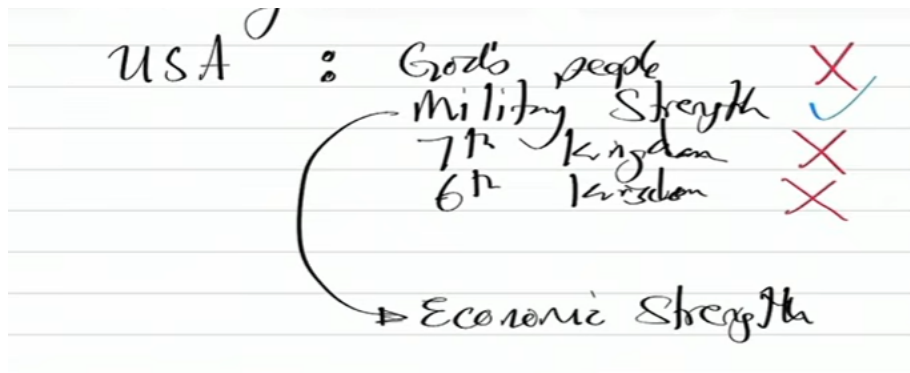 USA : God's people ✗
Military Strength ✓
7th Kingdom ✗
6th Kingdom ✗
Economic Strength